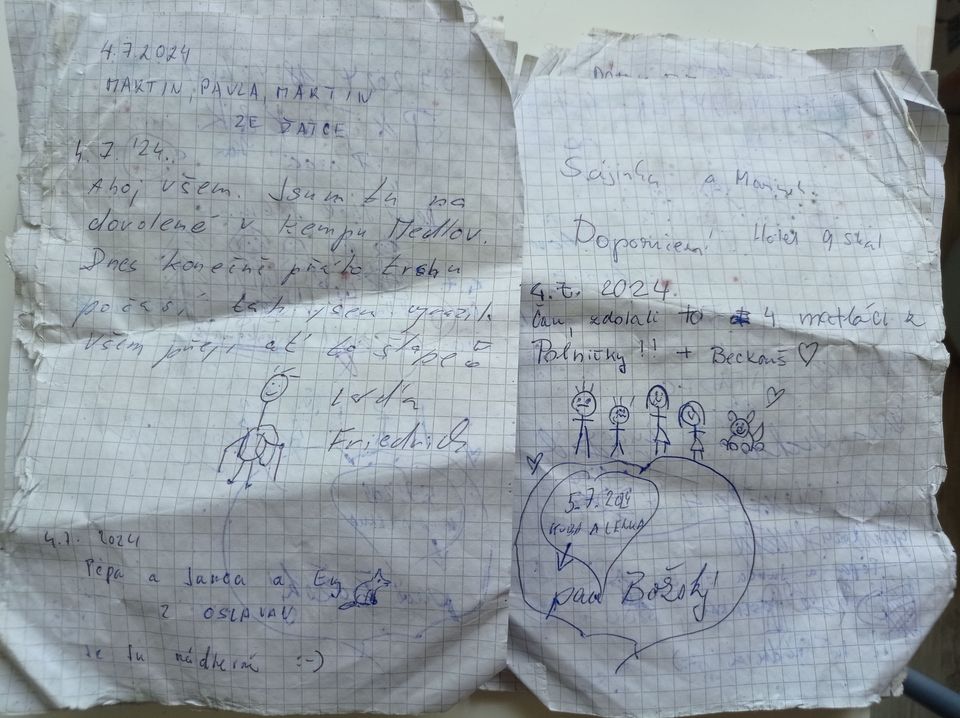 4.7.2024
MARTIN, PAVLA, MARTIN
ZE ŽATCE
4.7.'24.
Ahoj všem. Jsem tu na
dovolené v kempu Medlov.
Dnes konečně přálo trochu
počasí, tak jsem vyrazil.
Všem přeji ať to šlape
Friedrich
4.7. 2024
Pepa a Janča a
Z OSLAVAN
Je tu nádherně :-)
Šájinka a
Doporučení! Hotel 9 skal
4.7. 2024.
Čau, zdolali to 4 matláci z
Polničky!! + Beckouš ♡
5.7.2024
KUBA A LENKA
pan Božský